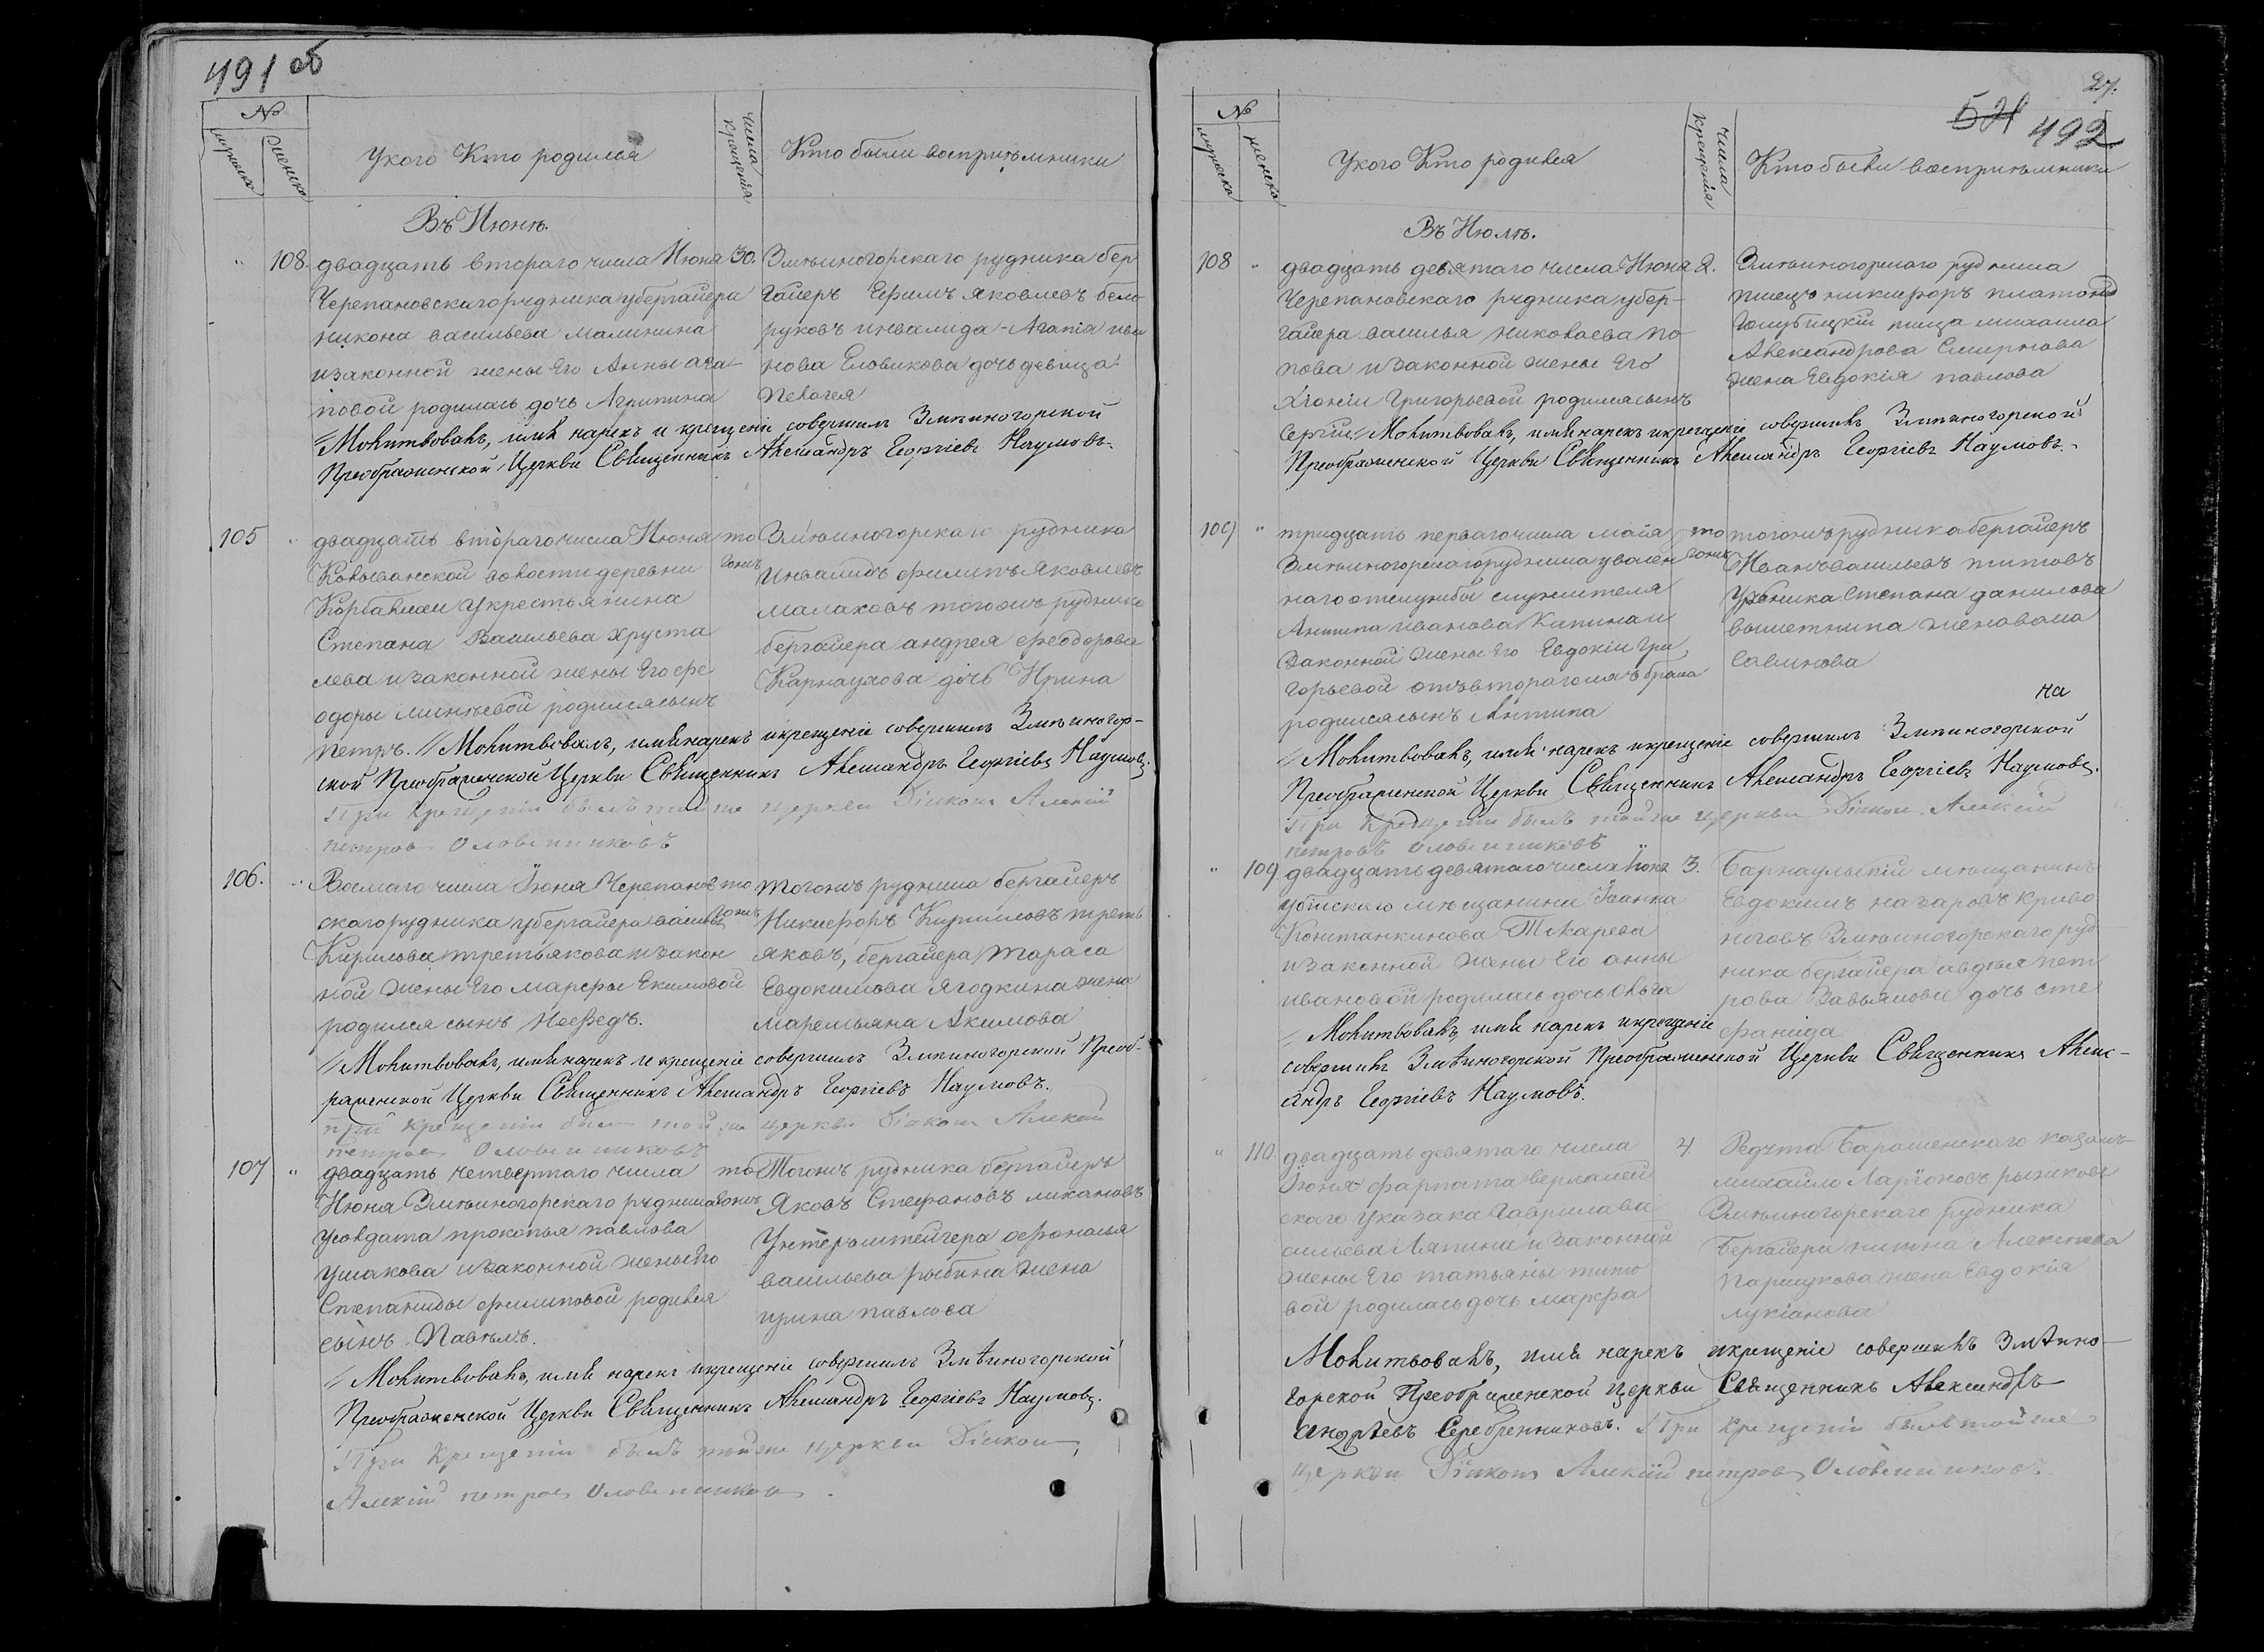 491 об
№
мужеска
женска
У кого Кто родился
числа крещенія
Кто были восприѣмники
Въ Июнѣ.
„ 108. двадцать втораго числа Июня
Черепановскаго рудника убергайера
никона васильева малинина
и законной жены Его Анны ага-
повой родилась дочь Агрипина
30. Змѣиногорскаго рудника бер
Гайеръ Ефимъ яковлевъ бело
руковъ инвалида - Агапія ива
нова Еловикова дочь девица
Пелогея
Молитвовалъ, имя нарекъ и крещеніе совершилъ Змѣиногорской
Преображенской Церкви Священникъ Александръ Георгіевъ Наумовъ.
105 „ двадцать втораго числа Июня
Колыванской волости деревни
Карбалихи У крестьянина
Степана Васильева хруста
лева и законной жены Его фе
одоры родился сынъ
петръ.
то гожъ Змѣиногорскаго рудника
Инвалидъ филипъ яковлевъ
малаховъ тогожъ рудника
бергайера андрея феодорова
Карнаухова дочь Ирина
Молитвовалъ, имя нарекъ и крещеніе совершилъ Змѣиногор-
ской Преображенской Церкви Священникъ Александръ Георгіевъ Наумовъ.
При крещеніи былъ той же церкви Діаконъ Алексій
петровъ Оловенишниковъ
106. „ Восмаго числа Июня Черепанов
скаго рудника убергайера
Кирилова третьякова и закон
ной жены Его марфы Екимовой
родился сынъ Иосифъ.
то гожъ тогожъ рудника бергайеръ
Никифоръ Кириловъ треть
яковъ, бергайера тараса
Евдокимова Ягодкина жена
маремьяна Акимова
Молитвовалъ, имя нарекъ и крещеніе совершилъ Змѣиногорской Преоб-
раженской Церкви Священникъ Александръ Георгіевъ Наумовъ.
при крещеніи былъ той же церкви Діаконъ Алексій
петровъ Оловенишниковъ
107 „ двадцать четвертаго числа
Июня Змѣиногорскаго рудника
У солдата прокопья павлова
Ушакова и законной жены Его
Степаниды филиповой родился
сынъ Павелъ.
то гожъ Тогожъ рудника бергайеръ
Яковъ Стефановъ
Унтеръ штейгера афонасья
васильева рыбина жена
ирина павлова
Молитвовалъ, имя нарекъ и крещеніе совершилъ Змѣиногорской
Преображенской Церкви Священникъ Александръ Георгіевъ Наумовъ.
При крещеніи былъ той же церкви Діаконъ
Алексій петровъ Оловенишниковъ.
27.
492
№
мужеска
женска
У кого Кто родился
числа крещенія
Кто были восприѣмники
Въ Июлѣ.
108 „ двадцать девятаго числа Июня
Черепановскаго рудника убер-
гайера василья николаева по
пова и законной жены Его
Хіоніи Григорьевой родился сынъ
Сергій.
2. Змѣиногорскаго рудника
писецъ никифоръ платонов
Голубицкій писца михаила
Александрова Смирнова
жена Евдокія павлова
Молитвовалъ, имя нарекъ и крещеніе совершилъ Змѣиногорской
Преображенской Церкви Священникъ Александръ Георгіевъ Наумовъ.
109 „ тридцать перваго числа майя
Змѣиногорскаго рудника уволен
наго от службы служителя
Антипа иванова Капина и
законной жены Его Евдокіи Гри
горьевой отъ втораго брака
родился сынъ Антипа
то гожъ тогожъ рудника бергайеръ
Иванъ васильевъ титовъ
Степана данилова
жена
Савинова
на
Молитвовалъ, имя нарекъ и крещеніе совершилъ Змѣиногорской
Преображенской Церкви Священникъ Александръ Георгіевъ Наумовъ.
При крещеніи былъ той же церкви Діаконъ Алексій
петровъ Оловенишниковъ
„ 109 двадцать девятаго числа Июня
убинскаго мѣщанина Иоанна
Константинова Токарева
и законной жены Его анны
ивановой родилась дочь Ольга
3. Барнаульскій мѣщанинъ
Евдокимъ назаровъ криво
ноговъ Змѣиногорскаго руд
ника бергайера авдѣя пет
рова Завьялова дочь сте
фанида
Молитвовалъ, имя нарекъ и крещеніе
совершилъ Змѣиногорской Преображенской Церкви Священникъ Алекс-
андръ Георгіевъ Наумовъ.
„ 110 двадцать девятаго числа
Июня форпоста верхалей
скаго у казака Гаврила ва
сильева Ляпина и законной
жены Его татьяны тито
вой родилась дочь марфа
4. Редута Барашенскаго казакъ
михайло Ларіоновъ рыжковъ
Змѣиногорскаго рудника
Бергайера никона Алексеева
Паршукова жена Евдокія
лукіанова
Молитвовалъ, имя нарекъ и крещеніе совершилъ Змѣино-
горской Преображенской церкви Священникъ Александръ
Андрѣевъ Серебренниковъ. При крещеніи былъ той же
церкви Діаконъ Алексій петровъ Оловенишниковъ.